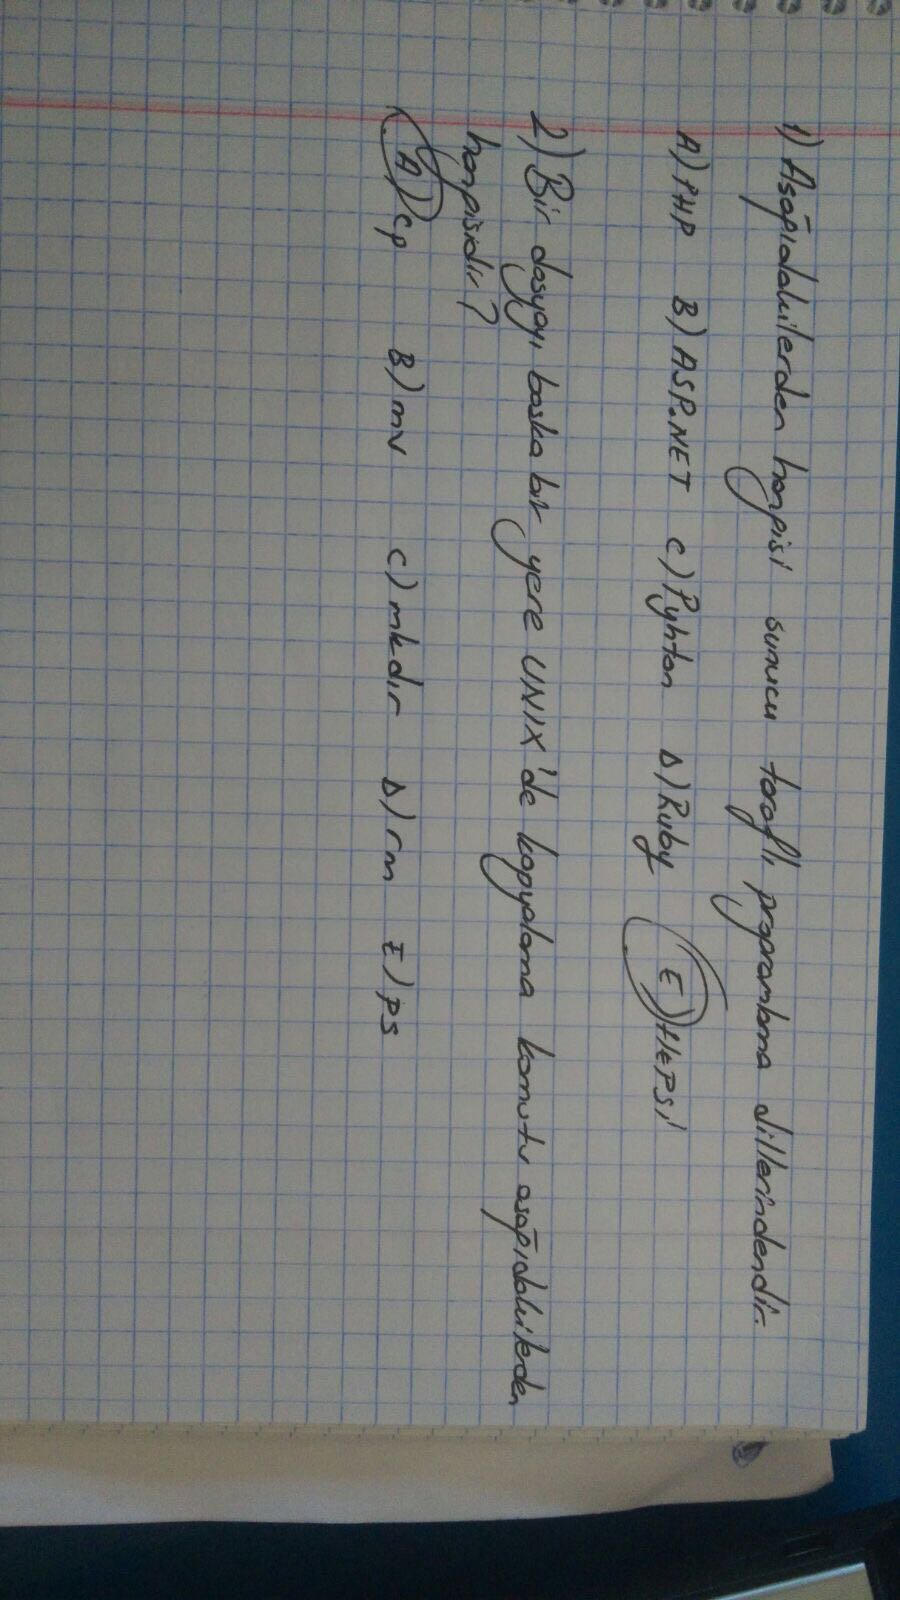 1) Aşağıdakilerden hangisi sunucu taraflı programlama dillerindendir.
A) PHP B) ASP.NET C) Pyhton D) Ruby E) HEPSİ
2) Bir dosyayı başka bir yere UNIX'de kopyalama komutu aşağıdakilerden
hangisidir?
A) cp B) mv C) mkdır D) rm E) ps